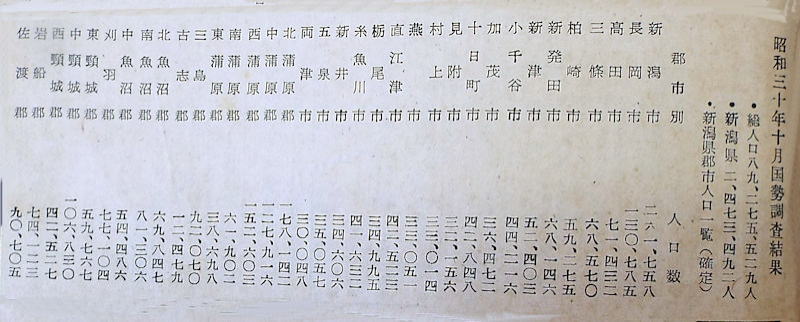 昭和三十年十月国勢調査結果
・総人口八九、二七五、五二九人
・新潟県 二、四七三、四九二人
・新潟県郡市人口一覧(確定)
郡市別 人口数
新潟市 二六一、七五八
長岡市 一三〇、七八五
高田市 七一、四三二
三條市 六八、五七〇
柏崎市 五九、二七五
新発田市 六八、一四四
新津市 五二、四〇三
小千谷市 四四、二一六
加茂市 三六、四七二
十日町市 二八、六四八
見附市 三二、一五六
村上市 三三、〇一四
燕市 三三、〇五一
直江津市
栃尾市 三四、九九五
糸魚川市
新井市
五泉市 三五、〇五七
両津市 三〇、〇四八
北蒲原郡 一七八、一四二
中蒲原郡 一二八、九一六
西蒲原郡 一五二、五〇三
南蒲原郡 六一、九〇二
東蒲原郡 三八、六七九
三島郡 九二、〇七〇
古志郡 一二、四七九
北魚沼郡 六九、八四七
南魚沼郡 八一、三〇六
中魚沼郡 五四、四八六
刈羽郡 七七、一〇四
東頸城郡 五九、七六七
中頸城郡 一〇六、八三〇
西頸城郡 四二、五二七
岩船郡 七四、一二三
佐渡郡 九〇、七〇五